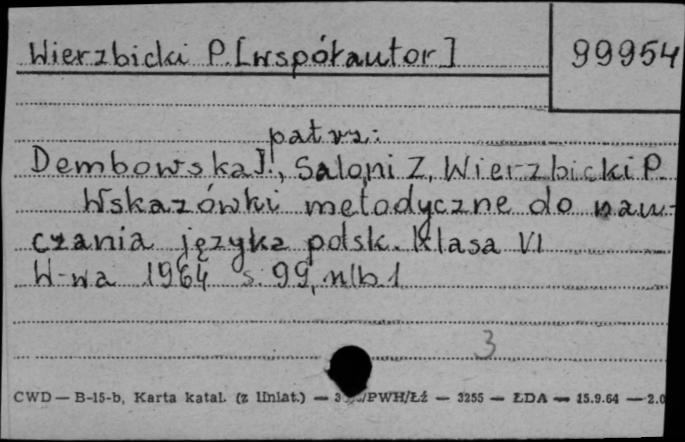 Wierzbicki P. [współautor] 99954
patrz:
Dembowska J., Saloni Z, Wierzbicki P.
Wskazówki metodyczne do nau-
czania języka polsk. Klasa VI
W-wa 1964 s. 99, nlb. 1
3
CWD — B-15-b, Karta katal. (z liniat.) — /PWH/Łź — 3255 — ŁDA — 15.9.64 — 2.0